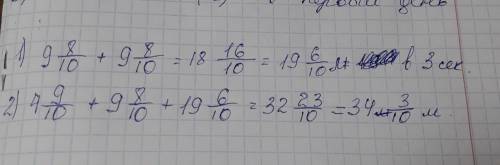 первый день
1) 9 8/10 + 9 8/10 = 18 16/10 = 19 6/10 м в 3 сек.
2) 4 9/10 + 9 8/10 + 19 6/10 = 32 23/10 = 34 3/10 м.